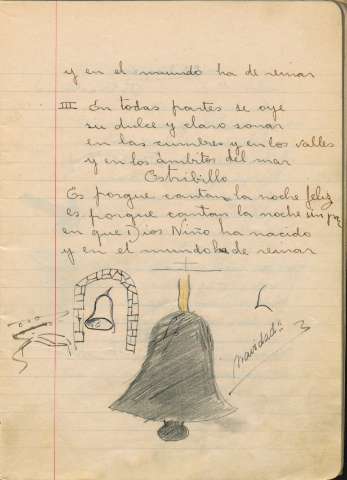 y en el mundo ha de reinar
III En todas partes se oye
su dulce y claro sonar
en las cumbres y en los valles
y en los ámbitos del mar
Estribillo
Es porque cantan la noche feliz
es porque cantan la noche sin par
en que Dios Niño ha nacido
y en el mundo ha de reinar